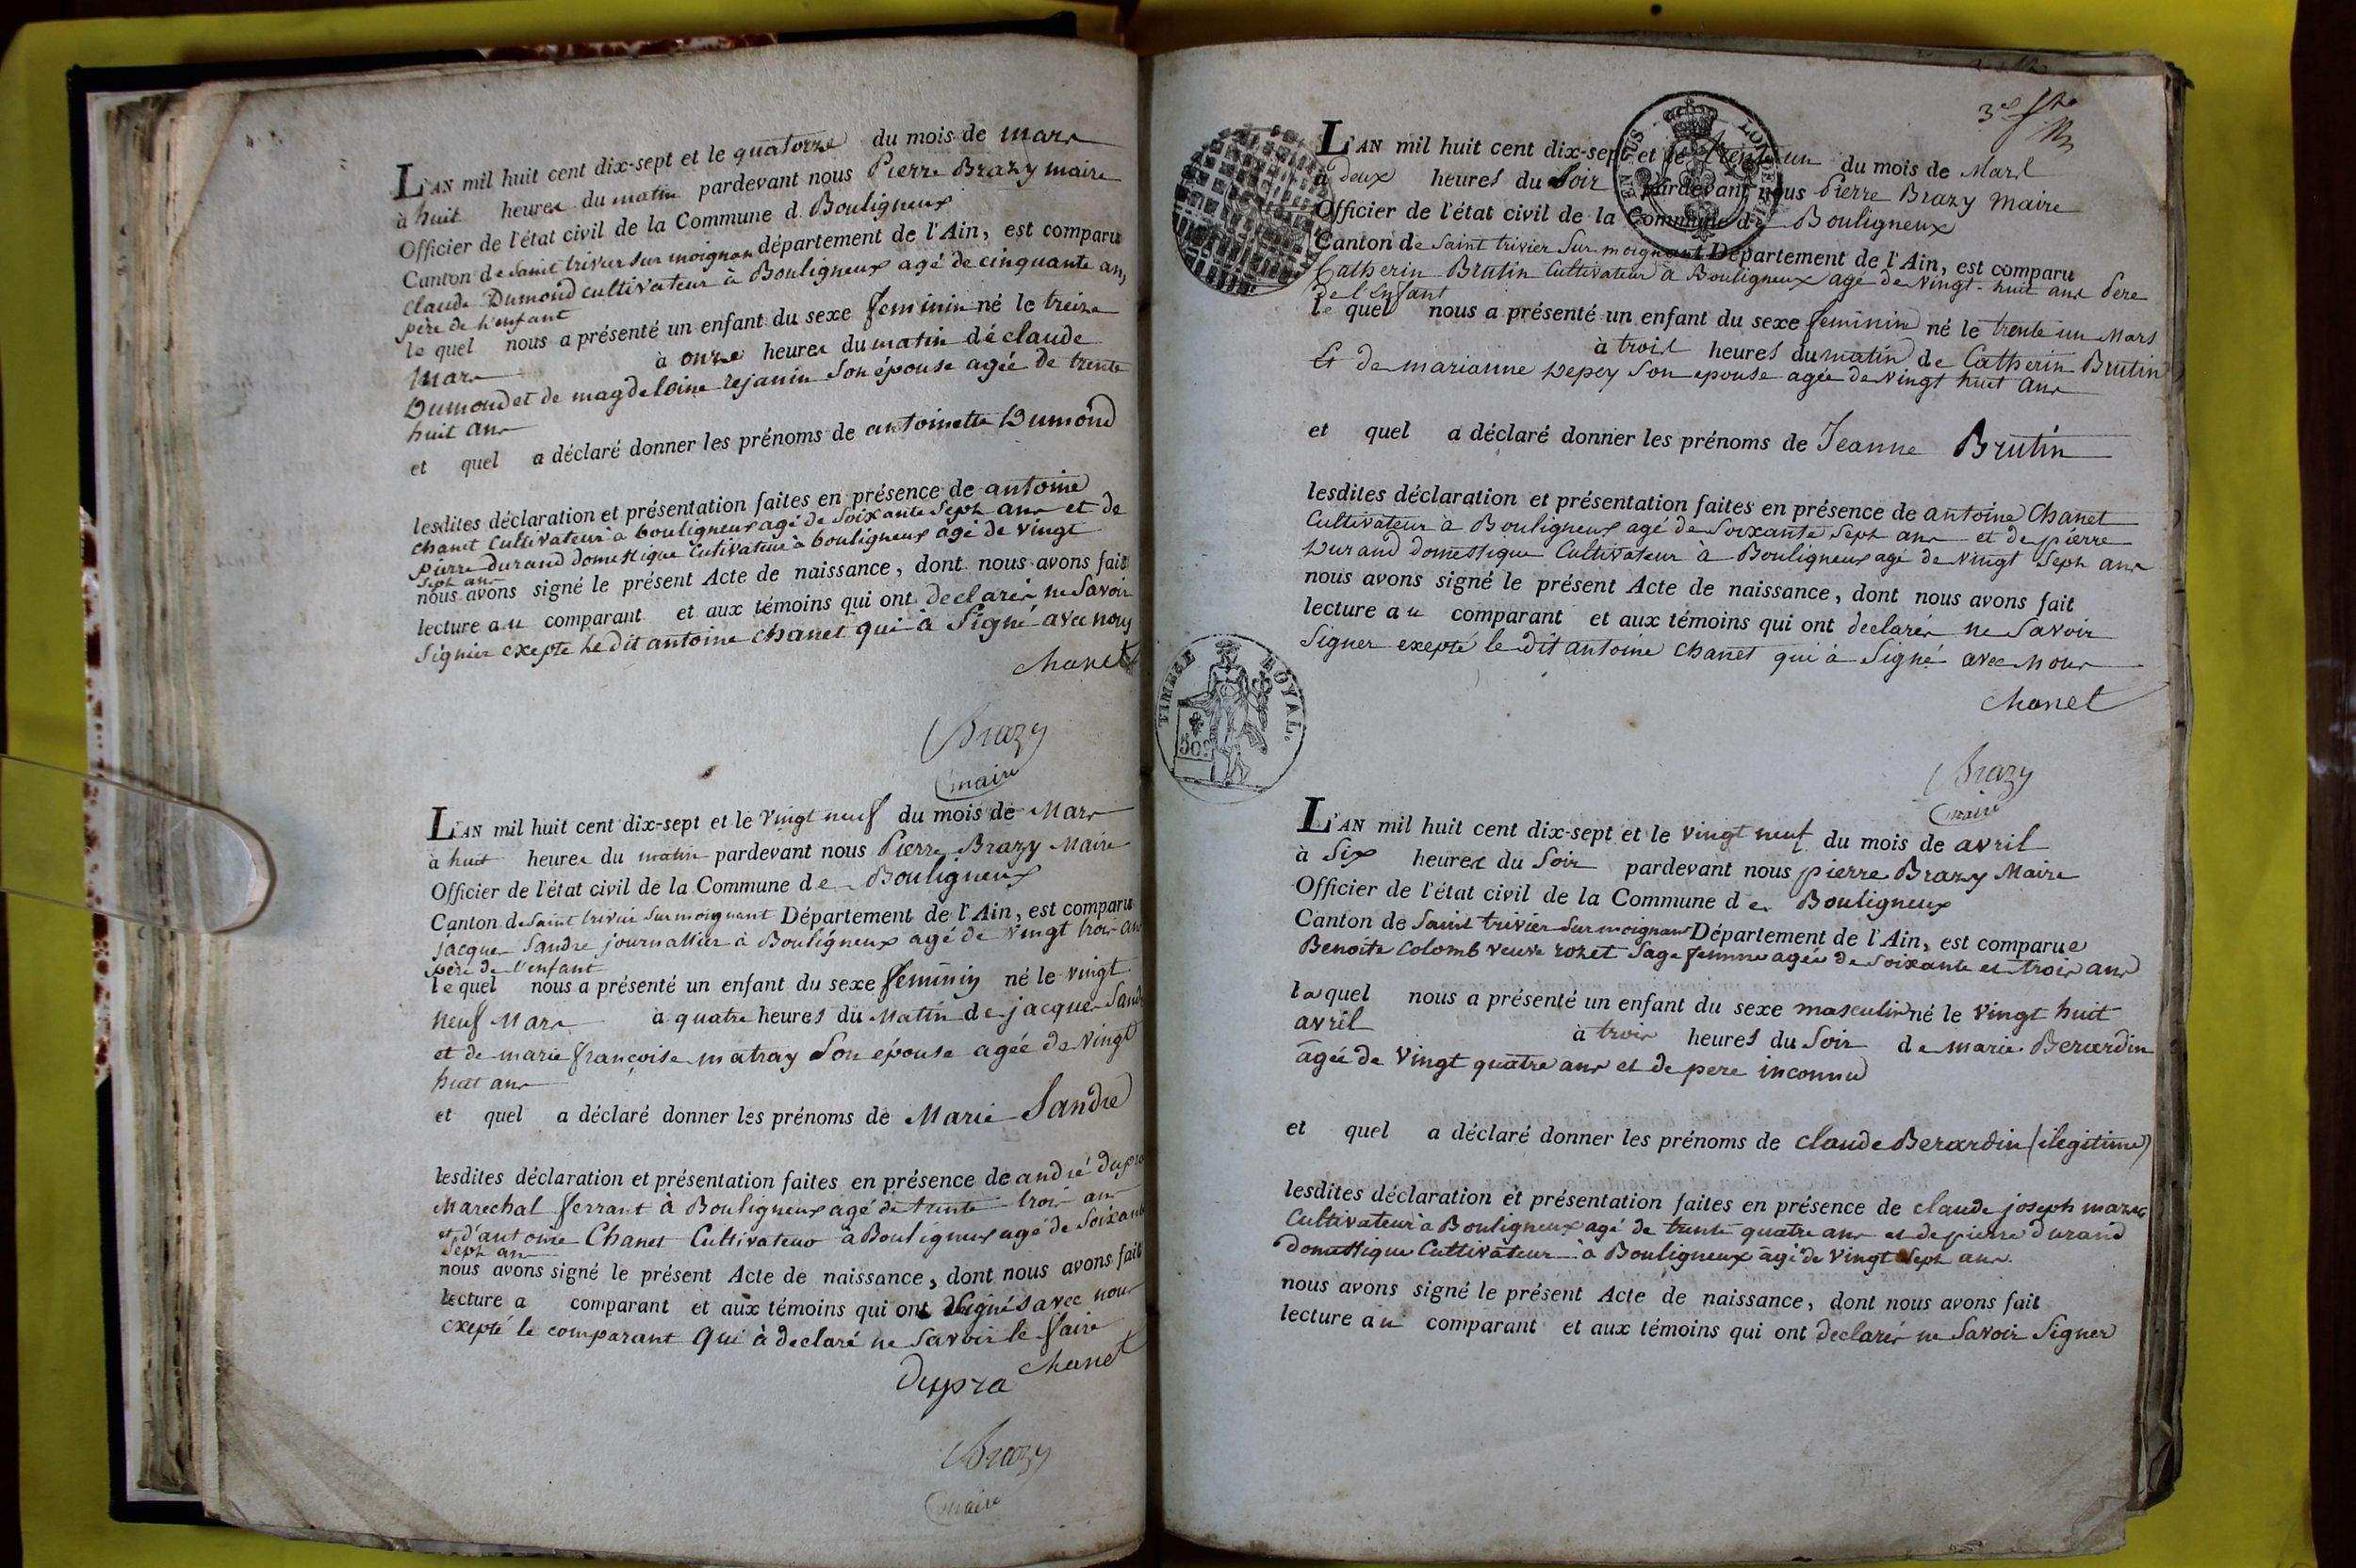 L'AN mil huit cent dix-sept et le quatorze du mois de mars
à huit heures du matin pardevant nous Pierre Brazy maire
Officier de l'état civil de la Commune d. Bouligneux
Canton de saint trivier sur moignan département de l'Ain, est comparu
Claude Dumond cultivateur à Bouligneux agé de cinquante ans
père de l'enfant
le quel nous a présenté un enfant du sexe feminin né le treize
Mars à onze heures du matin dé claude
Dumond et de magdelaine Lejanin son épouse agée de trente
huit ans
et quel a déclaré donner les prénoms de antoinette Dumond
lesdites déclaration et présentation faites en présence de antoine
chanet cultivateur à bouligneux agé de soixante Sept ans et de
pierre durand domestique cutivateur à bouligneux agé de vingt
sept ans
nous avons signé le présent Acte de naissance, dont nous avons fait
lecture au comparant et aux témoins qui ont declarés ne Savoir
Signier exepte le dit antoine chanet qui à Signé avec nous
chanet
Brazy
maire
L'AN mil huit cent dix-sept et le vingt neuf du mois de Mars
à huit heures du matin pardevant nous Pierre Brazy Maire
Officier de l'état civil de la Commune de Bouligneux
Canton de Saint trivier Sur moignant Département de l'Ain, est comparu
jacques Sandre journallier à Bouligneux agé de vingt trois ans
père de l'enfant
le quel nous a présenté un enfant du sexe feminin né le vingt
neuf Mars à quatre heures du Matin de jacques Sand
et de marie françoise matray Son épouse agée de vingt
huit ans
et quel a déclaré donner les prénoms de Marie Sandre
lesdites déclaration et présentation faites en présence de andré dupra
Marechal ferrant à Bouligneux agé de trente trois ans
et d'antoine Chanet Cultivateur à Bouligneux agé de Soixante
Sept ans
nous avons signé le présent Acte de naissance, dont nous avons fait
lecture a comparant et aux témoins qui ont Signés avec nous
exepté le comparant qui à declaré ne savoir le faire
Dupra chanet
Brazy
maire
TIMBRE ROYAL.
50c
L'AN mil huit cent dix-sept et le trente un du mois de Mars
à deux heures du Soir pardevant nous Pierre Brazy Maire
Officier de l'état civil de la Commune de Bouligneux
Canton de Saint trivier Sur moignant Département de l'Ain, est comparu
Catherin Brutin Cultivateur à Bouligneux agé de vingt-huit ans Père
de l'enfant
le quel nous a présenté un enfant du sexe feminin né le trente un Mars
à trois heures du matin de Catherin Brutin
Et de marianne Depey Son epouse agée de vingt huit ans
et quel a déclaré donner les prénoms de Jeanne Brutin
lesdites déclaration et présentation faites en présence de antoine Chanet
Cultivateur à Bouligneux agé de Soixante Sept ans et de pierre
Durand domestique Cultivateur à Bouligneux agé de vingt Sept ans
nous avons signé le présent Acte de naissance, dont nous avons fait
lecture au comparant et aux témoins qui ont declarés ne Savoir
Signer exepté le dit antoine chanet qui à Signé avec nous
chanet
Brazy
maire
L'AN mil huit cent dix-sept et le vingt neuf du mois de avril
à Six heures du Soir pardevant nous pierre Brazy Maire
Officier de l'état civil de la Commune de Bouligneux
Canton de Saint trivier Sur moignans Département de l'Ain, est comparue
Benoite Colomb veuve rozet Sage femme agée de Soixante et trois ans
la quel nous a présenté un enfant du sexe masculin né le vingt huit
avril à trois heures du Soir de marie Berardin
agée de vingt quatre ans et de pere inconnu
et quel a déclaré donner les prénoms de claude Berardin (ilegitime)
lesdites déclaration et présentation faites en présence de claude joseph
Cultivateur à Bouligneux agé de trente quatre ans et de pierre durand
domestique Cultivateur à Bouligneux agé de vingt Sept ans.
nous avons signé le présent Acte de naissance, dont nous avons fait
lecture au comparant et aux témoins qui ont declarés ne Savoir Signer